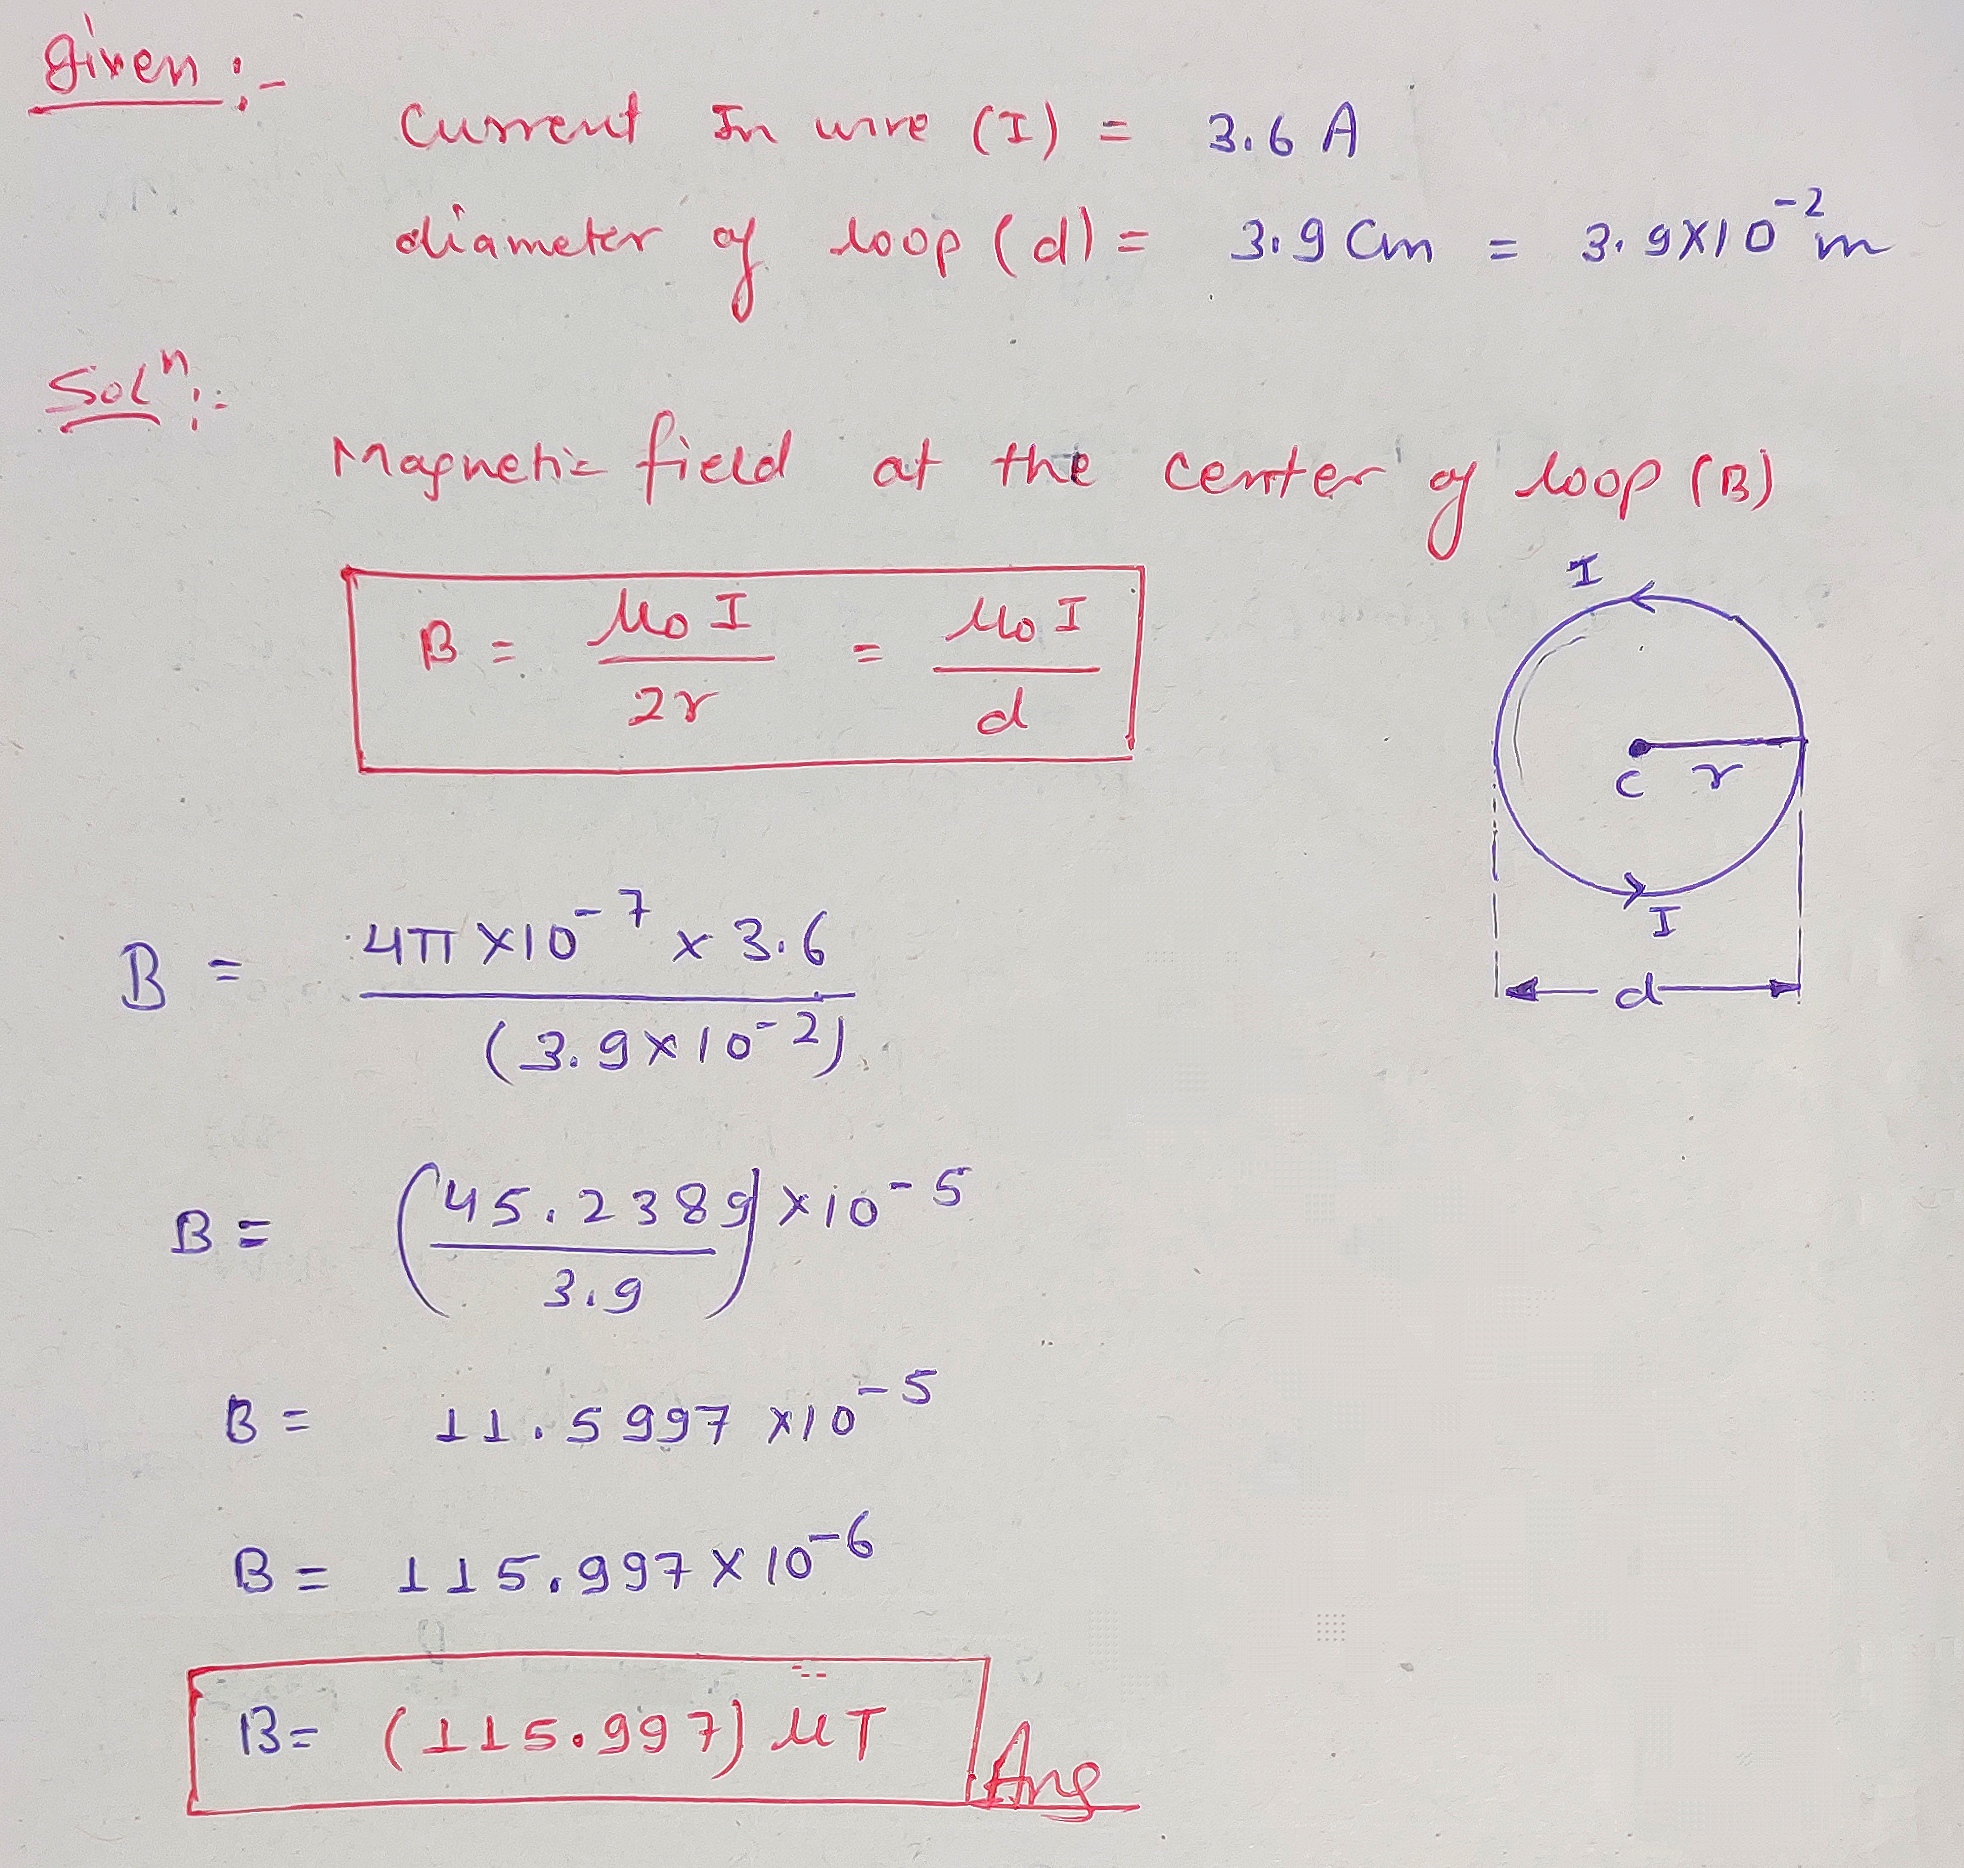 Given :-
Current In wire (I) = 3.6 A
diameter of loop (d) = 3.9 Cm = 3.9×10⁻² m
Solⁿ :-
Magnetic field at the center of loop (B)
B = μ₀ I / 2r = μ₀ I / d
I
C r
I
d
B = 4π ×10⁻⁷ × 3.6 / (3.9×10⁻²)
B = (45.2389 / 3.9) ×10⁻⁵
B = 11.5997 ×10⁻⁵
B = 115.997 × 10⁻⁶
B = (115.997) μT Ans